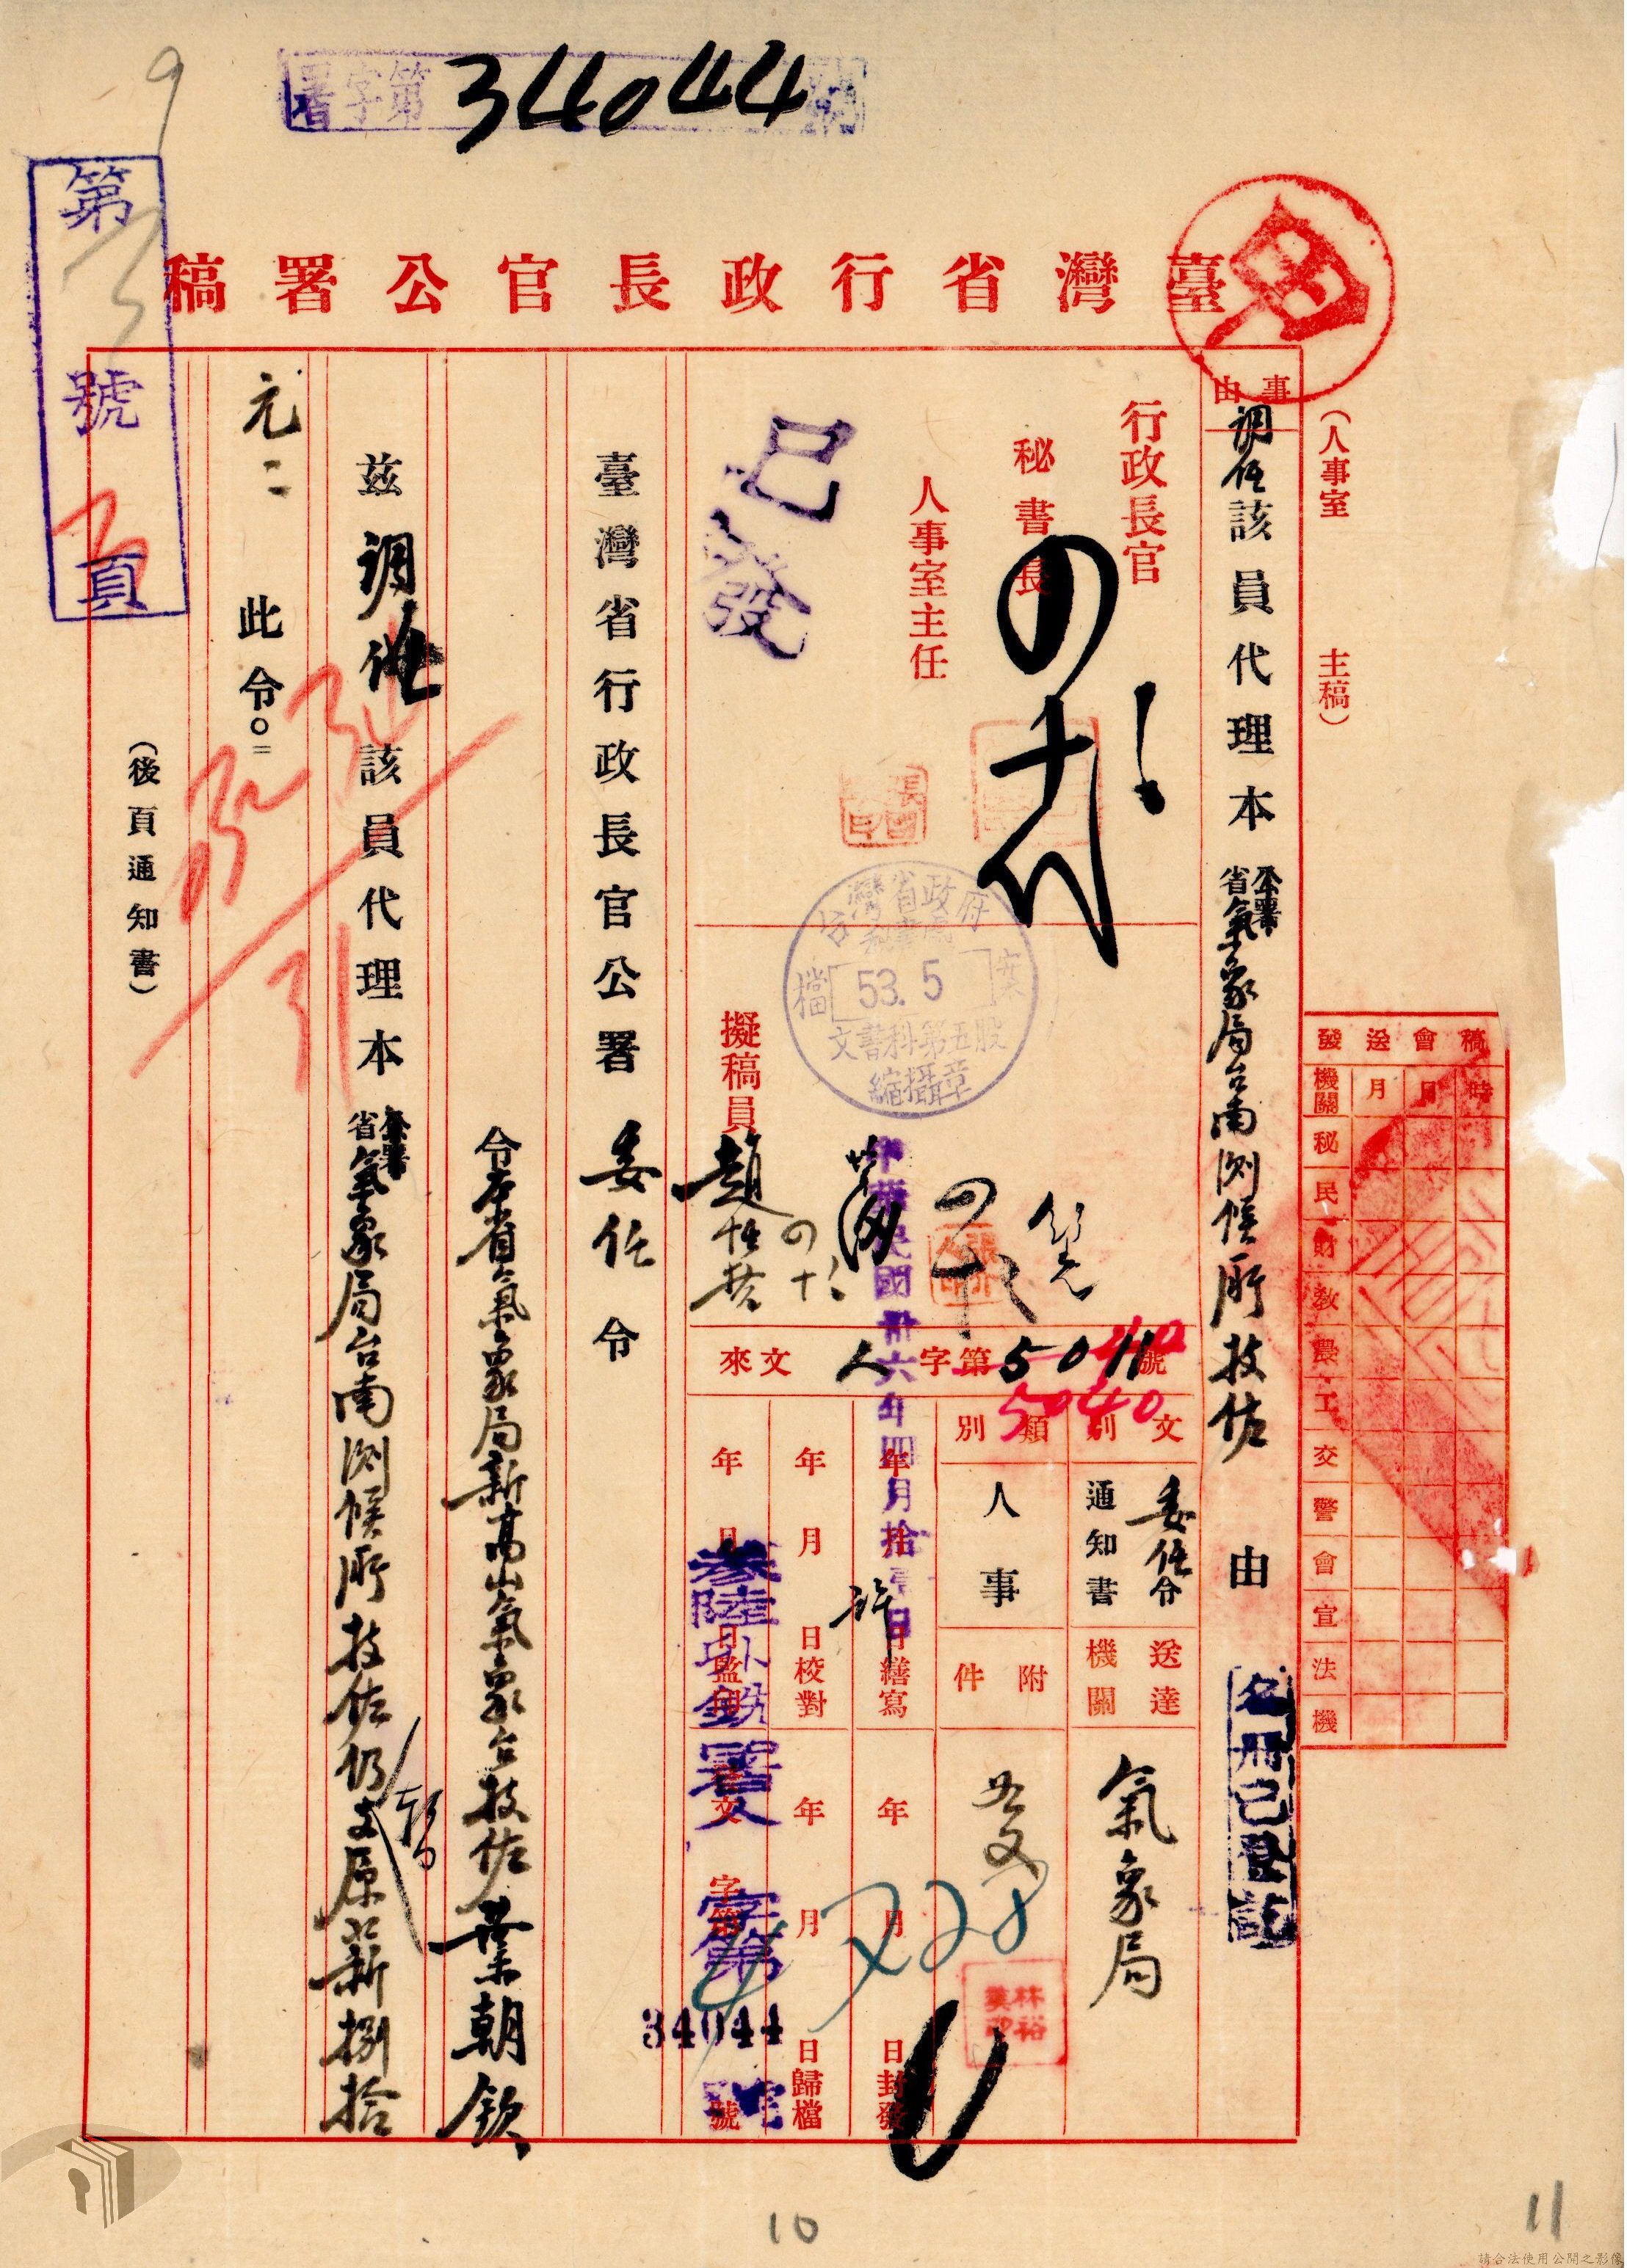 34044
第 號 頁
臺灣省行政長官公署稿
(人事室 主稿)
事由
調任該員代理本省氣象局台南測候所技佐 由
名冊已登記
行政長官
秘書長
人事室主任
已發
擬稿員
趙
台灣省政府
秘書處
檔 53. 5 案
文書科第五股
縮攝章
中華民國卅六年四月拾壹日
來文 人字第5011號
5040
文別 委任令 通知書
類別 人事
送達機關 氣象局
附件
年 月 日繕寫
年 月 日校對
年 月 日監印
年 月 日封發
年 月 日歸檔
發文 字第 號
參陸卯 署人字第 34044 號
稿會送發
時 日 月 機關
秘
民
財
教
農
工
交
警
會
宣
法
機
臺灣省行政長官公署 委任令
令本省氣象局新高山氣象台技佐葉朝欽
茲調任該員代理本省氣象局台南測候所技佐仍支原薪捌拾
元 此令。
(後頁通知書)
9
10
11
請合法使用公開之影像